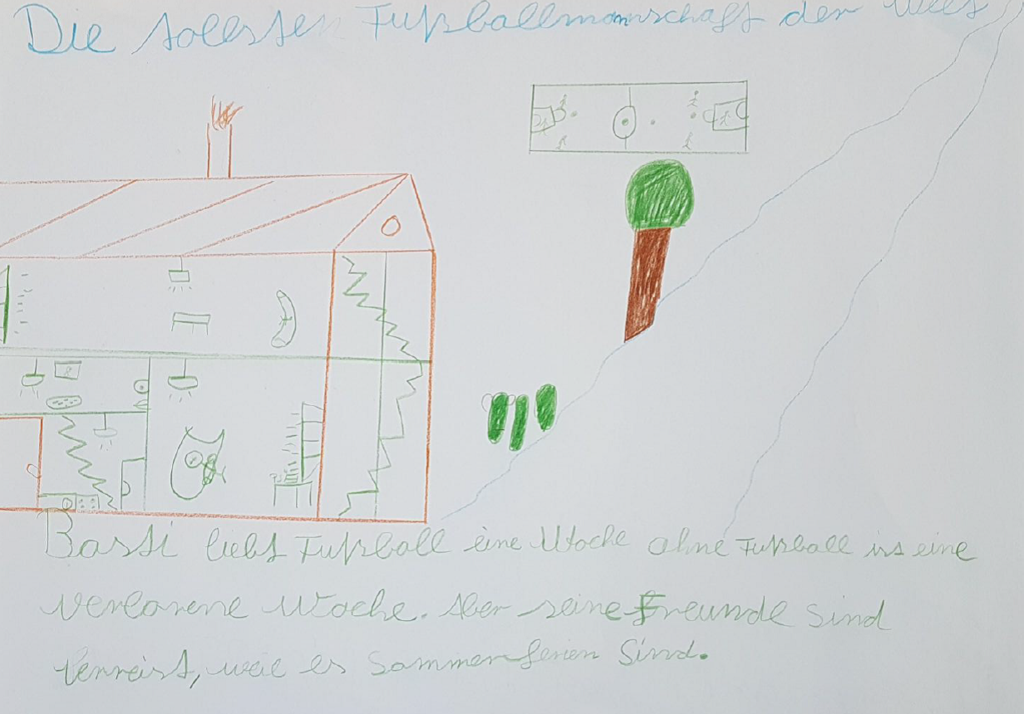 Die tollsten Fußballmannschaft der Welt
Basti liebt Fußball eine Woche ohne Fußball ist eine
verlorene Woche. Aber seine Freunde sind
verreist, weil es Sommerferien sind.